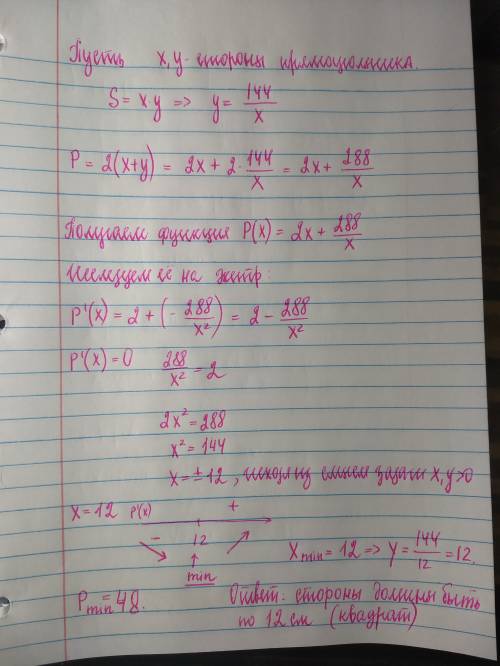 Пусть x, y - стороны прямоугольника.
S = x·y => y = 144/x
P = 2(x+y) = 2x + 2·144/x = 2x + 288/x
Получаем функция P(x) = 2x + 288/x
Исследуем её на экстр:
P'(x) = 2 + (- 288/x²) = 2 - 288/x²
P'(x) = 0 288/x² = 2
2x² = 288
x² = 144
x = ± 12, исходя из смысл задачи x, y > 0
x = 12 P'(x) - 12 +
min
x min = 12 => y = 144/12 = 12.
P min = 48. Ответ: стороны должны быть
по 12 см (квадрат)